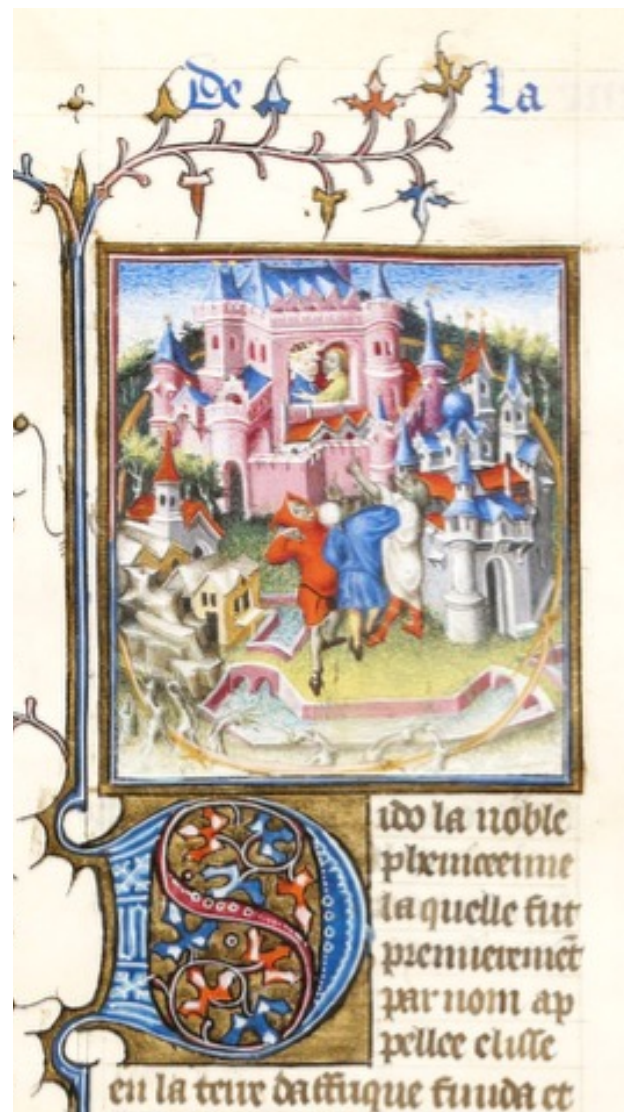 De La
Dido la noble
phenicienne
laquelle fut
premieremēt
par nom ap
pellee elisse
en la terre daffrique funda et